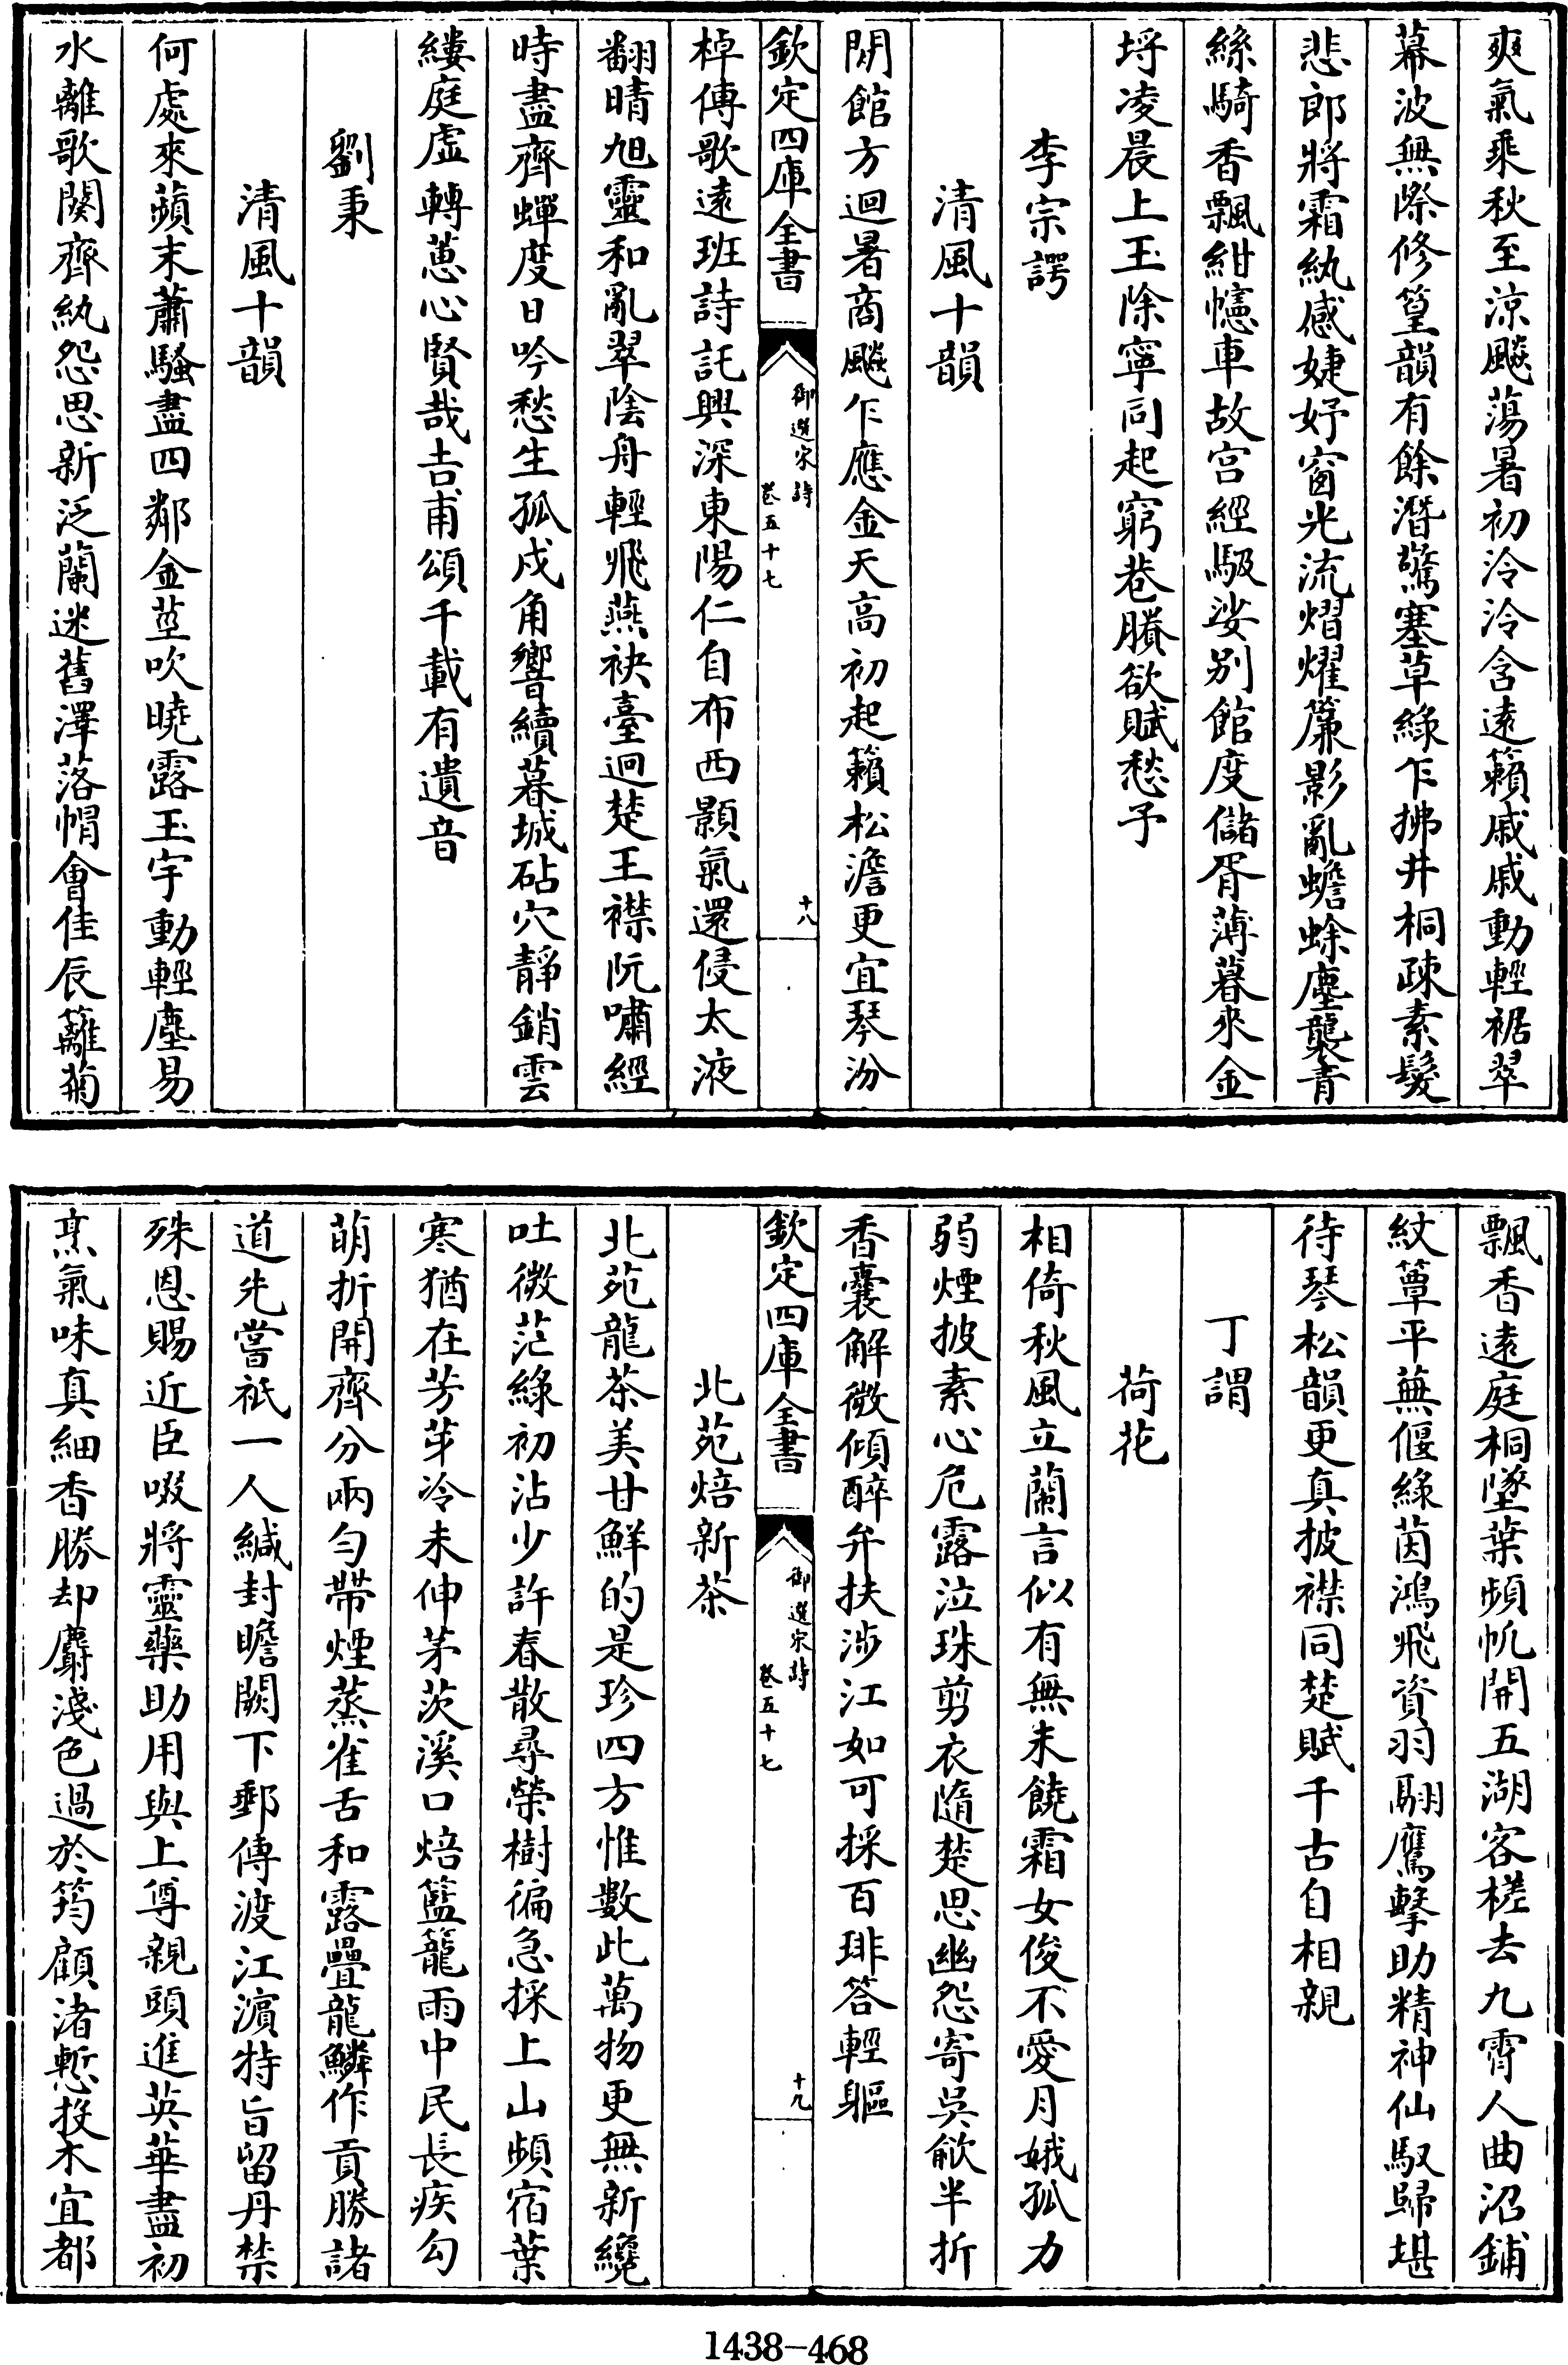 爽氣乘秋至涼飈蕩暑初泠泠含遠籟戚戚動輕裾翠
幕波無際修篁韻有餘潛驚塞草綠乍拂井桐疎素髮
悲郎將霜紈感婕妤窗光流熠燿簾影亂蟾蜍塵襲青
絲騎香飄紺幰車故宫經馺娑别館度儲胥薄暮來金
埒凌晨上玉除寧同起窮巷賸欲賦愁予
李宗諤
清風十韻
閒館方迴暑商飈乍應金天高初起籟松澹更宜琴汾
欽定四庫全書
御選宋詩
卷五十七
十八
棹傳歌遠班詩託興深東陽仁自布西顥氣還侵太液
翻晴旭靈和亂翠陰舟輕飛燕袂臺迥楚王襟阮嘯經
時盡齊蟬度日吟愁生孤戍角響續暮城砧穴靜銷雲
縷庭虛轉蕙心賢哉吉甫頌千載有遺音
劉秉
清風十韻
何處來蘋末蕭騷盡四鄰金莖吹曉露玉宇動輕塵易
水離歌闋齊紈怨思新泛蘭迷舊澤落帽會佳辰籬菊
飄香遠庭桐墜葉頻帆開五湖客槎去九霄人曲沼鋪
紋簟平蕪偃綠茵鴻飛資羽翮鷹擊助精神仙馭歸堪
待琴松韻更真披襟同楚賦千古自相親
丁謂
荷花
相倚秋風立蘭言似有無未饒霜女俊不愛月娥孤力
弱煙披素心危露泣珠剪衣隨楚思幽怨寄吳歈半折
香囊解微傾醉弁扶涉江如可採百琲答輕軀
欽定四庫全書
御選宋詩
卷五十七
十九
北苑焙新茶
北苑龍茶美甘鮮的是珍四方惟數此萬物更無新纔
吐微茫綠初沾少許春散尋縈樹徧急採上山頻宿葉
寒猶在芳芽冷未伸茅茨溪口焙籃籠雨中民長疾勾
萌折開齊分兩勻帶煙蒸雀舌和露疊龍鱗作貢勝諸
道先嘗祇一人緘封瞻闕下郵傳渡江濵特旨留丹禁
殊恩賜近臣啜將靈藥助用與上尊親頭進英華盡初
烹氣味真細香勝却麝淺色過於筠顧渚慙投木宜都
1438-468